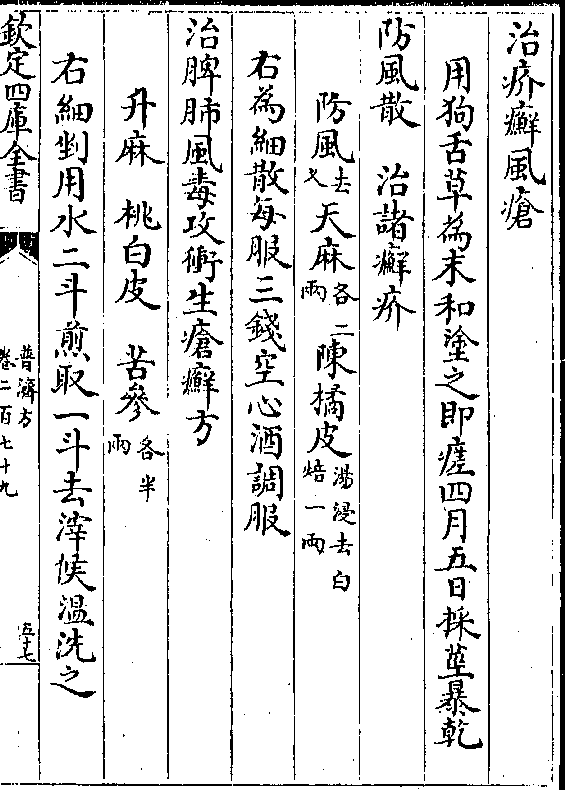 治疥癬風瘡
用狗舌草為末和塗之即瘥四月五日採莖暴乾
防風散　治諸癬疥
防風去叉天麻各二兩陳橘皮湯浸去白焙一兩
右為細散每服三錢空心酒調服
治脾肺風毒攻衝生瘡癬方
升麻　桃白皮　苦參各半兩
右細剉用水二斗煎取一斗去滓候溫洗之
欽定四庫全書
普濟方
卷二百七十九
五十七